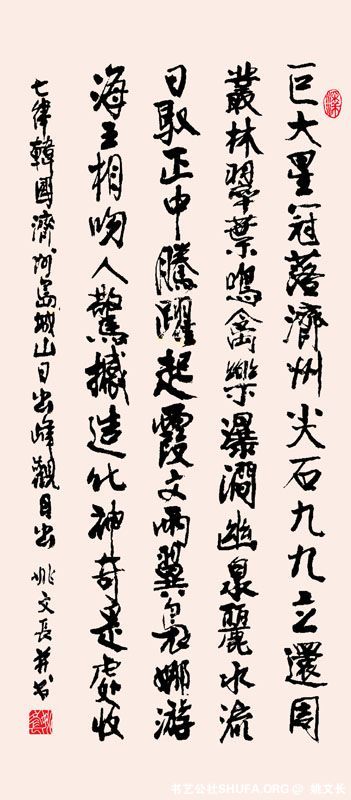 巨大星冠落濟州尖石九九立還周
叢林翠葉鳴禽樂瀑澗幽泉麗水流
日馭正中騰躍起霞文兩翼裊娜游
海相吻人驚撼造化神奇是處收
七律韓國濟州島城山日出峰觀日出 姚文長并書
书艺公社SHUFA.ORG @ 姚文长